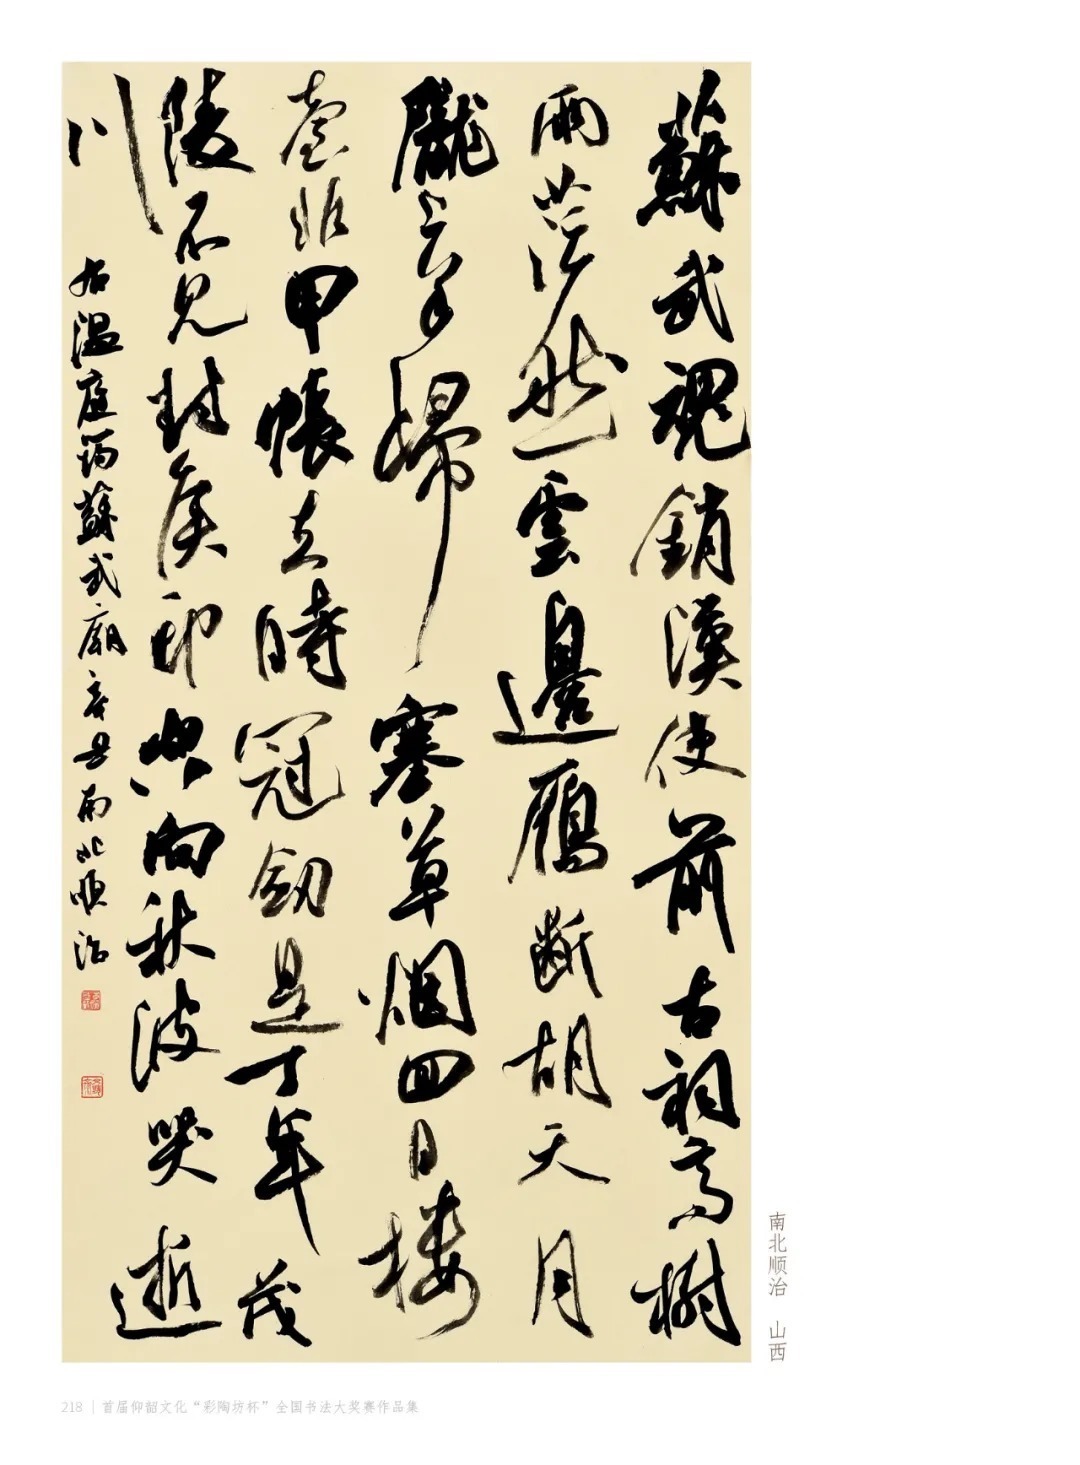 蘇武魂銷漢使前古祠高樹
兩茫然雲邊鴈断胡天月
隴上羊歸塞草烟回日楼
臺非甲帳去時冠劒是丁年茂
陵不見封侯印空向秋波哭逝
川
右温庭筠蘇武廟辛丑南北順治
南北顺治 山西
218 | 首届仰韶文化“彩陶坊杯”全国书法大奖赛作品集